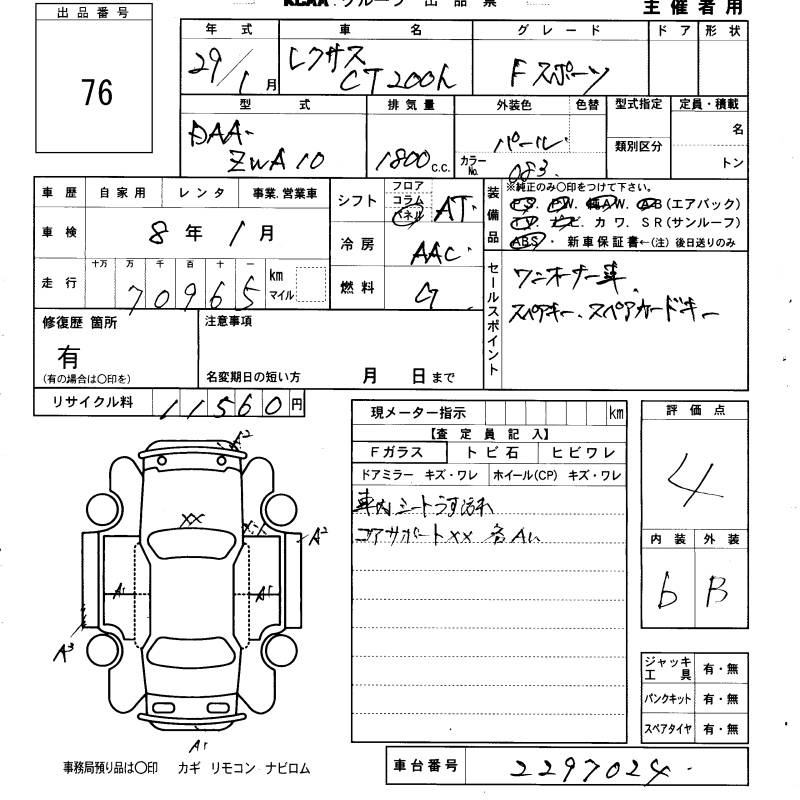 KCAA.グループ 出品票 主催者用
出品番号
76
年式 車名 グレード ドア 形状
29/1月 レクサス CT200h Fスポーツ
型式 排気量 外装色 色替 型式指定 定員・積載
DAA-ZWA10 1800 c.c. パール カラーNo. 083 類別区分 名
トン
車歴 自家用 レンタ 事業.営業車
車検 8年1月
走行 十万 万 千 百 十 一
70965 km マイル
シフト フロア コラム パネル AT
冷房 AAC
燃料 G
装備品 ※純正のみ〇印をつけて下さい。
PS. PW. 純AW. AB(エアバック)
TV. ナビ. カワ. SR(サンルーフ)
ABS. 新車保証書←(注) 後日送りのみ
セールスポイント
ワンオーナー車
スペアキー、スペアカードキー
修復歴 箇所
有
(有の場合は〇印を)
注意事項
名変期日の短い方 月 日まで
リサイクル料 11560円
現メーター指示 km
【査定員記入】
Fガラス トビ石 ヒビワレ
ドアミラー キズ・ワレ ホイール(CP) キズ・ワレ
車内シートうす汚れ
コアサポートXX 各A1
評価点
4
内装 外装
b B
A2
XX
XX
A2
A1
A1
A3
A1
ジャッキ工具 有・無
パンクキット 有・無
スペアタイヤ 有・無
事務局預り品は〇印 カギ リモコン ナビロム
車台番号 2297024